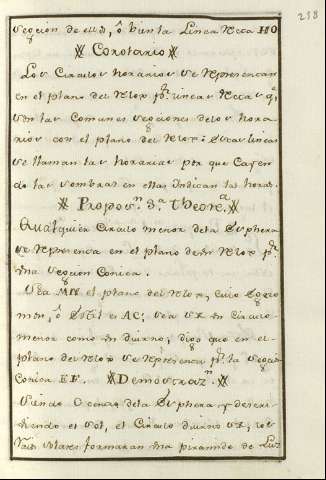 258
seccion de ella, ô bien la Linea recta HO
Corolario
Los Circulos horarios se representan
en el plano del relox pr. lineas rectas q.
son las Comunes secciones delos hora-
rios con el plano del relox: estas lineas
se llaman las horarias por que Cayen
do las sombras en ellas Indican las horas.
Propos.n 3.a Theore.a
Qualquier Circulo menor dela Sphera
se representa en el plano de un relox pr.
una seccion Conica.
Sea MN el plano del relox, cuio
ô es AC; sea un Circulo
menor como un diurno, digo que en el
plano del relox se representa pr. la seccn.
Conica EF. Demostraz.n
Siendo O centro dela Sphera, y descri-
viendo el sol, el Circulo diurno, los
raios solares formaran una piramide de Luz